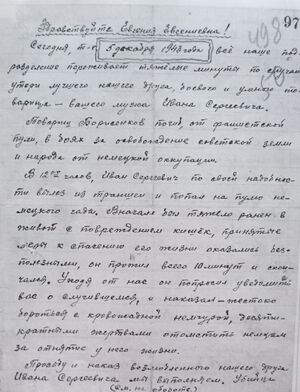 97
498
Здравствуйте Евгения Евгениевна!
Сегодня, т-е 5 декабря 1943 года всё наше под-
разделение переживает тяжёлые минуты по случаю
утери лучшего нашего друга, боевого и умного то-
варища – вашего мужа Ивана Сергеевича.
Товарищ Борисенков погиб от фашистской
пули, в боях за освобождение советской земли
и народа от немецкой оккупации.
В 12 часов, Иван Сергеевич по своей надобнос-
ти вылез из траншеи и попал на пулю не-
мецкого гада. Вначале был тяжело ранен в
живот с повреждением кишек, принятые
меры к спасению его жизни оказались бес-
полезными, он прожил всего 10 минут и скон-
чался. Уходя от нас он попросил уведомить
вас о случившемся, и наказал – жестоко
бороться с кровожадной немчурой, десяти-
кратными жертвами отомстить немцам
за отнятие у него жизни.
Просьбу и наказ возлюбленного нашего друга
Ивана Сергеевича мы выполняем. Убийца
(см. на обороте)